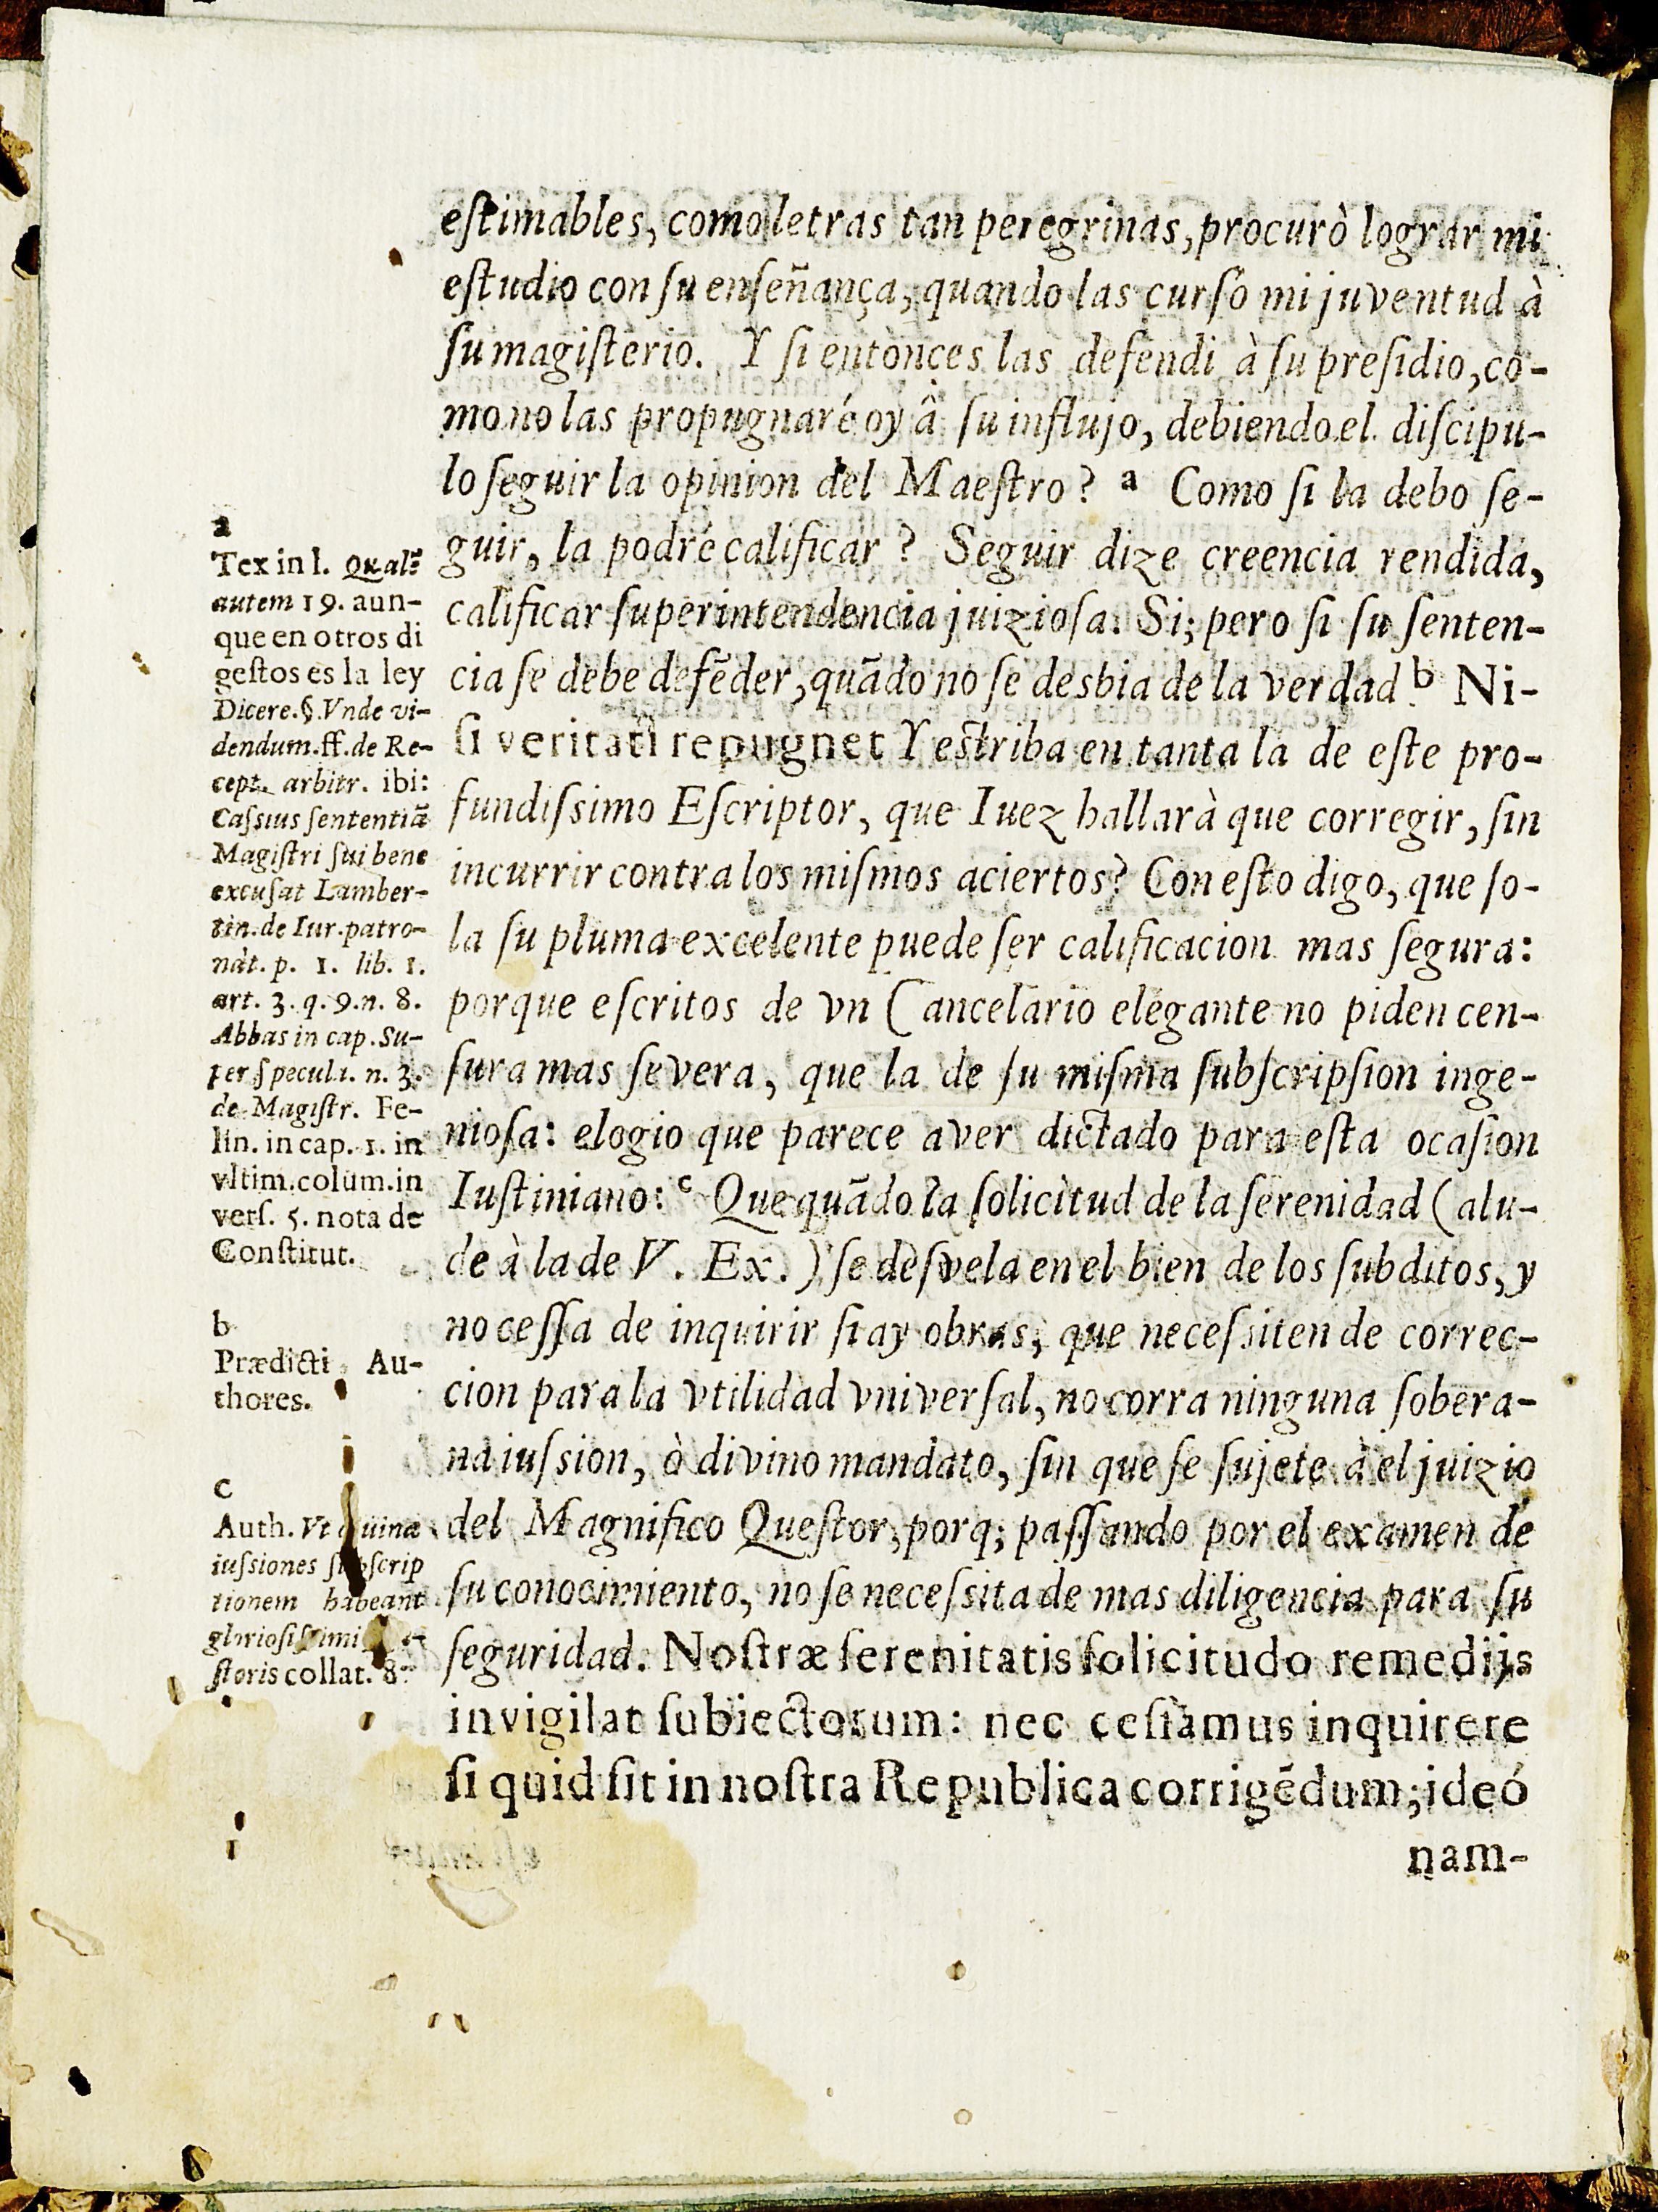 eſtimables, como letras tan peregrinas, procurò lograr mi
eſtudio con ſu enſeñança, quando las curſó mi juventud à
ſu magiſterio. Y ſi entònces las defendi à ſu preſidio, co-
mo no las propugnaré oy â ſu influjo, debiendo el diſcipu-
lo ſeguir la opinion del Maeſtro? a Como ſi la debo ſe-
guir, la podré calificar? Seguir dize creencia rendida,
calificar ſuperintendencia juizioſa. Si; pero ſi ſu ſenten-
cia ſe debe defẽder, quãdo no ſe desbia de la verdad b Ni-
ſi veritati repugnet Y eſtriba en tanta la de eſte pro-
fundiſsimo Eſcriptor, que Iuez hallarà que corregir, ſin
incurrir contra los miſmos aciertos? Con eſto digo, que ſo-
la ſu pluma excelente puede ſer calificacion mas ſegura:
porque eſcritos de vn Cancelario elegante no piden cen-
ſura mas ſevera, que la de ſu miſma ſubſcripſion inge-
nioſa: elogio que parece aver dictado para eſta ocaſion
Iuſtiniano: c Que quãdo la ſolicitud de la ſerenidad (alu-
de à la de V. Ex.) ſe deſvela en el bien de los ſubditos, y
no ceſſa de inquirir ſi ay obras, que neceſsiten de correc-
cion para la vtilidad vniverſal, no corra ninguna ſobera-
na iuſsion, ò divino mandato, ſin que ſe ſujete à el juizio
del Magnifico Queſtor, porq; paſſando por el examen de
ſu conocimiento, no ſe neceſsita de mas diligencia para ſu
ſeguridad. Noſtræ ſerenitatis ſolicitudo remedijs
invigilat ſubiectorum: nec ceſſamus inquirere
ſi quid ſit in noſtra Republica corrigẽdum; ideó
nam-
a
Tex in l. Qualẽ
autem 19. aun-
que en otros di
geſtos es la ley
Dicere. §. Vnde vi-
dendum. ff. de Re-
cept. arbitr. ibi:
Caſsius ſententiã
Magiſtri ſui bene
excuſat Lamber-
tin. de Iur. patro-
nàt. p. 1. lib. 1.
art. 3. q. 9. n. 8.
Abbas in cap. Su-
per ſpecula. n. 3.
de Magiſtr. Fe-
lin. in cap. 1. in
vltim. colum. in
verſ. 5. nota de
Conſtitut.
b
Prædicti Au-
thores.
c
Auth. Vt
iuſsiones
tionem habeant
ſtoris collat. 8.